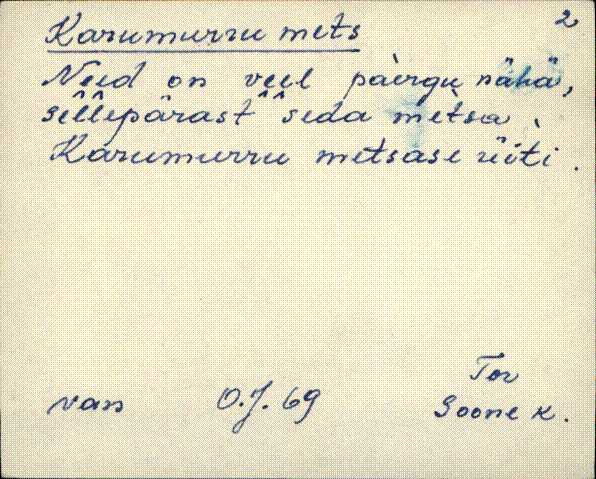 2
Karumurru mets
Need on veel pàergu nähä,
sêllepärast seda mètsa
Karumurru metsase üiti.
van O.J. 69 Tor
Soone k.